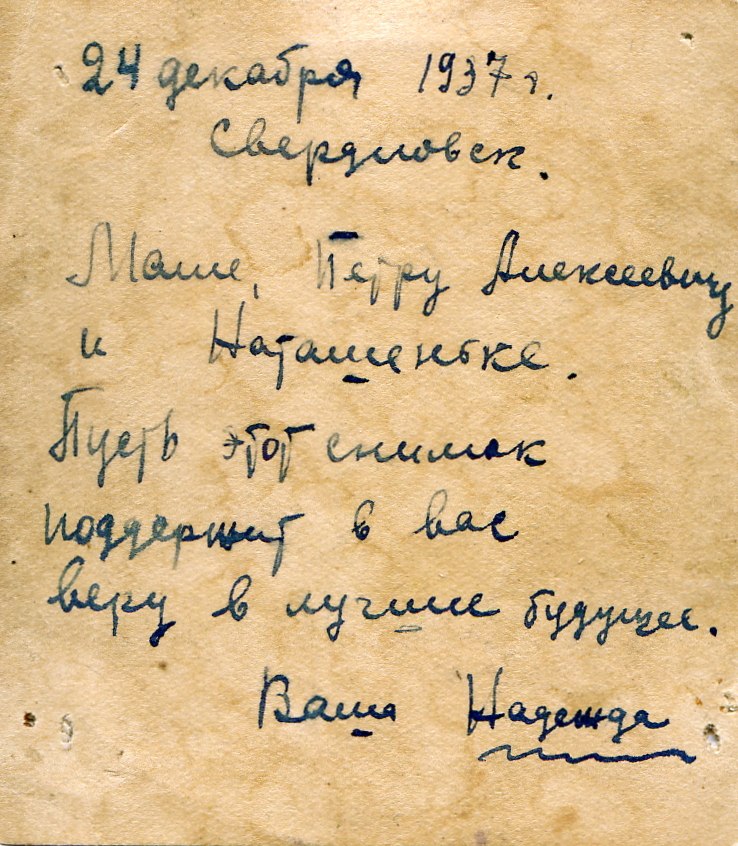 24 декабря 1937 г.
Свердловск.
Маше, Петру Алексеевичу
и Наташеньке.
Пусть этот снимок
поддержит в вас
веру в лучшее будущее.
Ваша Надежда